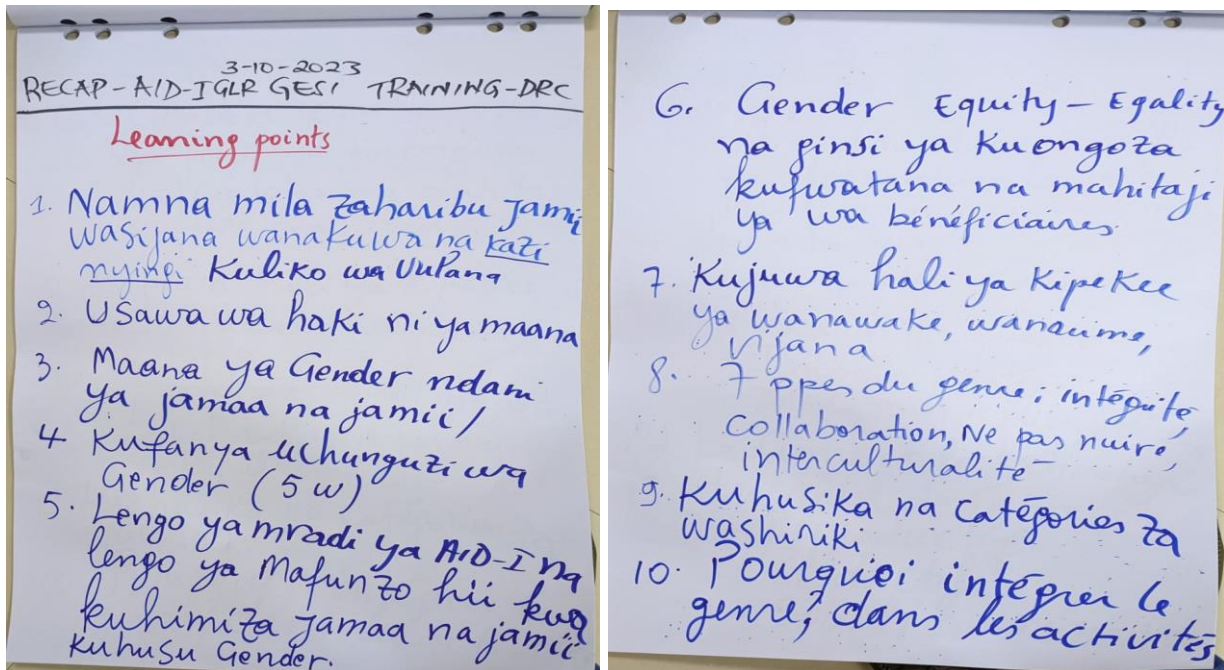 3-10-2023
RECAP-AID-IGLR GESI TRAINING-DRC
Learning points
1. Namna mila zaharibu Jamii
wasijana wanakuwa na kazi
nyingi Kuliko wa Vulana
2. Usawa wa haki ni ya maana
3. Maana ya Gender ndani
ya jamaa na jamii/
4 Kufanya uchunguzi wa
Gender (5 w)
5. Lengo ya mradi ya AID-I na
lengo ya Mafunzo hii kwa
kuhimiza jamaa na jamii
Kuhusu Gender.
6. Gender Equity-Egality
na ginsi ya Kuongoza
kufwatana na mahitaji
ya wa bénéficiaires
7. Kujuwa hali ya Kipekee
ya wanawake, wanaume,
vijana
8. 7 ppes du genre; intégrité,
Collaboration, Ne pas nuire,
interculturalité
9. Kuhusika na Catégories za
washiriki
10. Pourquoi intégrer le
genre, dans les activités